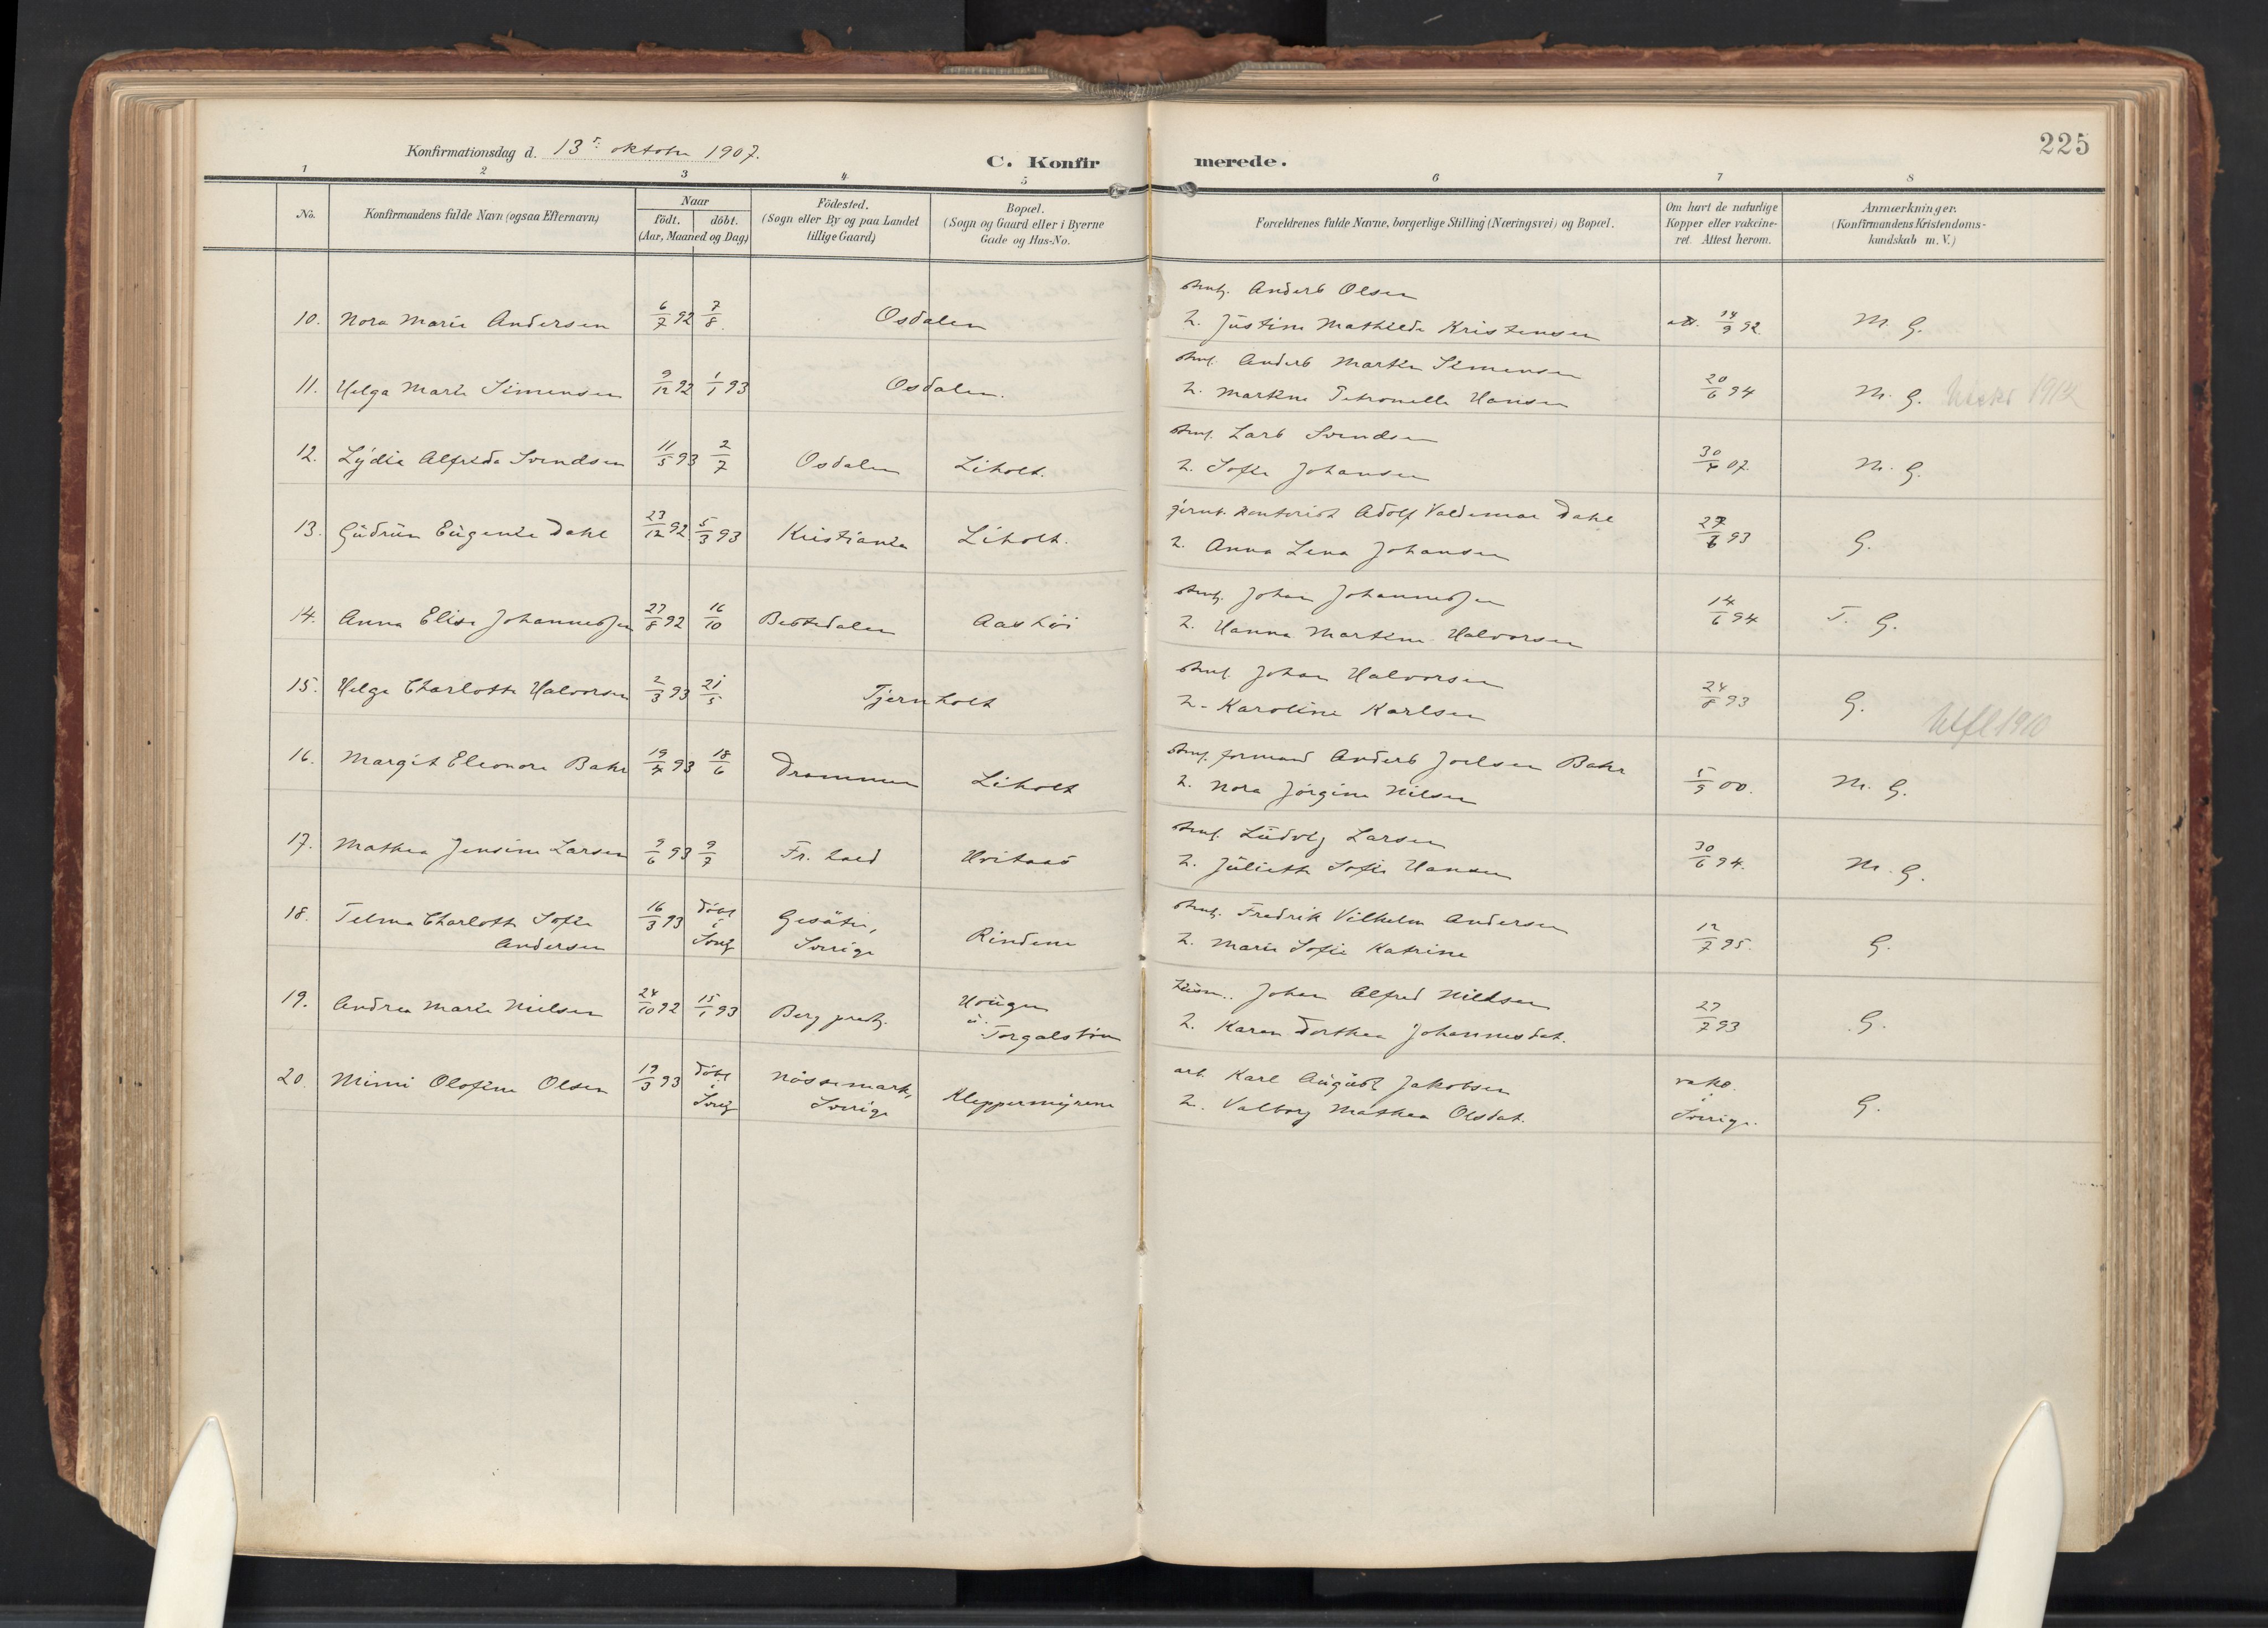 225
Konfirmationsdag d. 13de oktober 1907.
C. Konfirmerede.
1 2 3 4 5 6 7 8
No.
Konfirmandens fulde Navn (ogsaa Efternavn)
Naar
födt. döbt.
(Aar, Maaned og Dag)
Födested.
(Sogn eller By og paa Landet
tillige Gaard)
Bopæl.
(Sogn og Gaard eller i Byerne
Gade og Hus-No.
Forældrenes fulde Navne, borgerlige Stilling (Næringsvei) og Bopæl.
Om havt de naturlige
Kopper eller vakcine-
ret. Attest herom.
Anmærkninger.
(Konfirmandens Kristendoms-
kundskab m. V.)
Anders Olsen
10. Nora Marie Andersen 6/7 92 7/8. Osdalen h. Justine Mathilde Kristensen att. 14/9 92. M. G.
Anders Martin Simensen
11. Helga Marie Simensen 9/12 92 1/1 93 Osdalen. h. Martine Petronelle Hansen 20/6 94 M. G. 1912
Lars Svendsen
12. Lydia Alfrida Svendsen 11/5 93 2/7 Osdalen Liholt. h. Sofie Johansen 30/4 07. M. G.
jernb. kontorist Adolf Valdemar Dahl
13. Gudrun Eugenie Dahl 23/12 92. 5/3 93 Kristiania Liholt. h. Anna Lena Johansen 27/6 93 G.
Johan Johannessen
14. Anna Elise Johannessen 27/8 92 16/10 Bestedalen Aashöi h. Hanna Martine Halvorsen 14/6 94 T. G.
Johan Halvorsen
15. Helga Charlotte Halvorsen 2/3 93 21/5 Tjernholt h. Karoline Karlsen 24/8 93 G. Utfl 1910
formand Anders Joelsen Bahr
16. Margit Eleonore Bahr 19/4 93 18/6 Drammen Liholt h. Nora Jörgine Nilsen 5/9 00. M. G.
Ludvig Larsen
17. Mathea Jensine Larsen 9/6 93 9/7 Fr.hald Hvitaas h. Juliette Sofie Hansen 30/6 94. M. G.
Fredrik Vilhelm Andersen
18. Telma Charlotte Sofie Andersen 16/3 93 döbt i Sverg Gesäter, Sverige Rindene h. Marie Sofie Katrine 12/7 95. G.
husm. Johan Alfred Nielsen
19. Andrea Marie Nielsen 24/10 92 15/1 93 Berg prstg. Hougen u. Torgalsbön h. Karen Dorthea Johannesdat. 27/7 93 G.
arb. Karl August Jakobsen
20. Mimi Olofine Olsen 19/3 93 döbt i Sverg Nössemark, Sverige Kleppermyrene h. Valborg Mathea Olsdat. vakc. i Sverige. G.